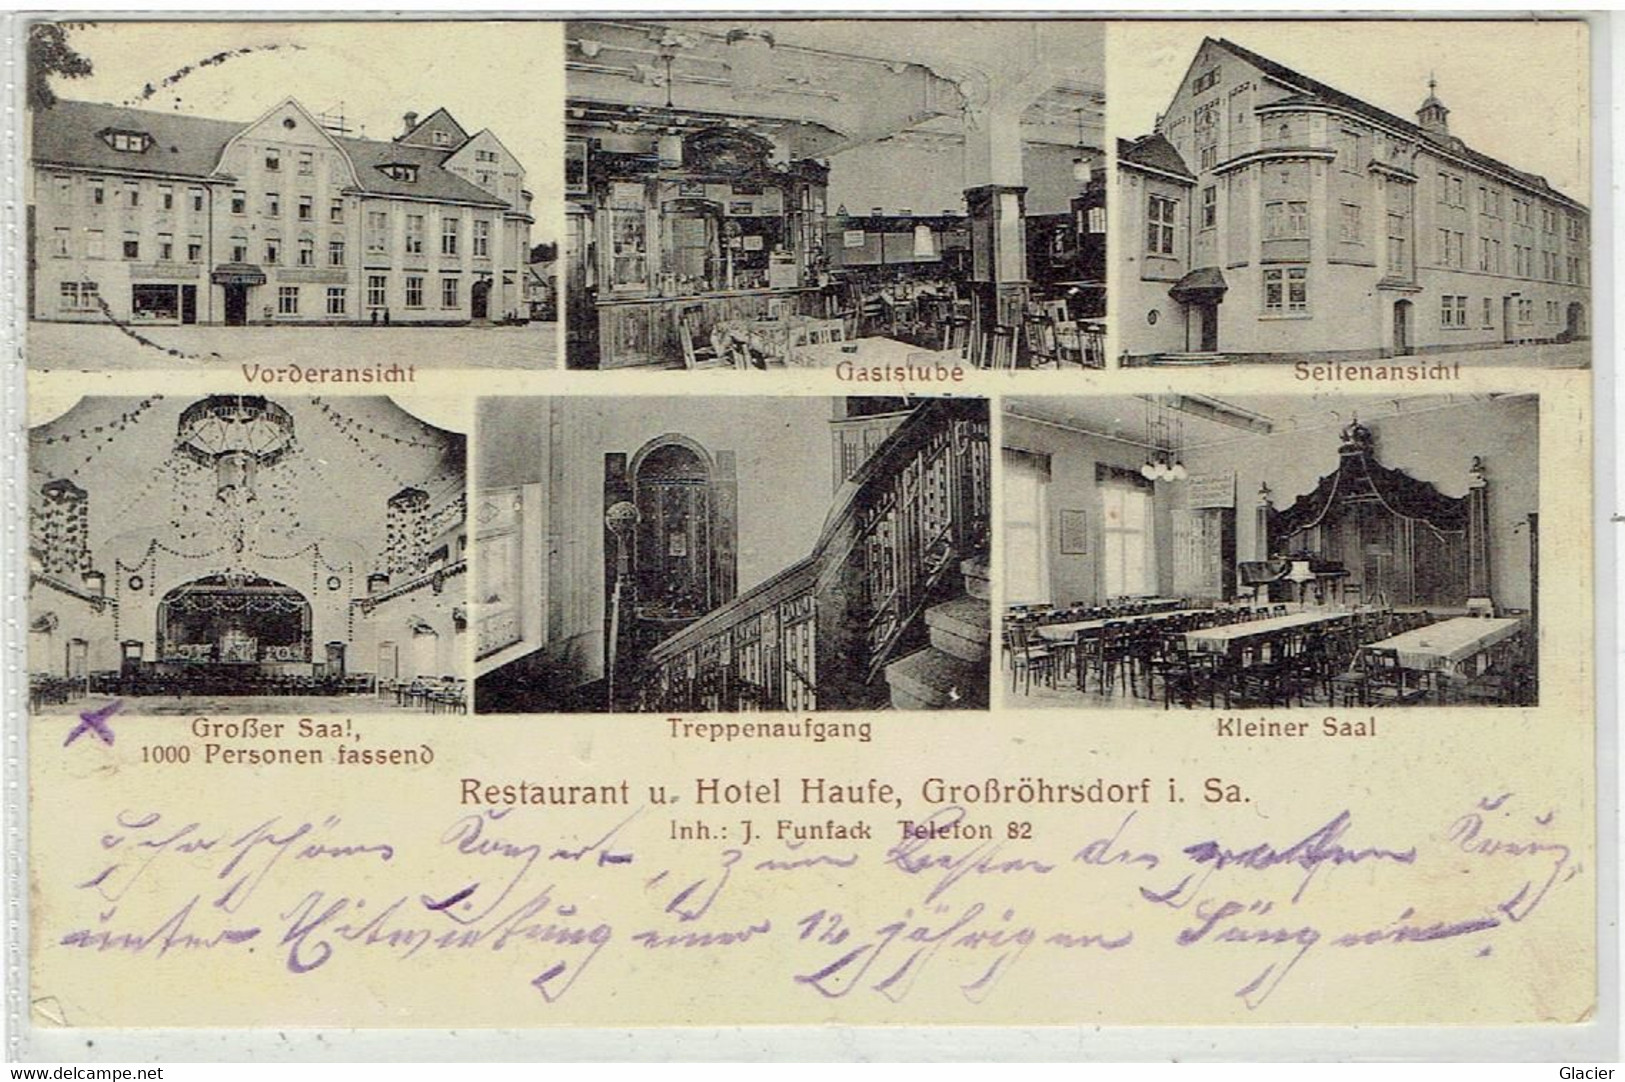 Vorderansicht
Gaststube
Seitenansicht
Großer Saal,
1000 Personen fassend
Treppenaufgang
Kleiner Saal
Restaurant u. Hotel Haufe, Großröhrsdorf i. Sa.
Inh.: J. Funfack Telefon 82
Sehr schönes Konzert, zum Besten des roten Kreuz,
unter Mitwirkung einer 12 jährigen Sängerin!
delcampe.net
Glacier